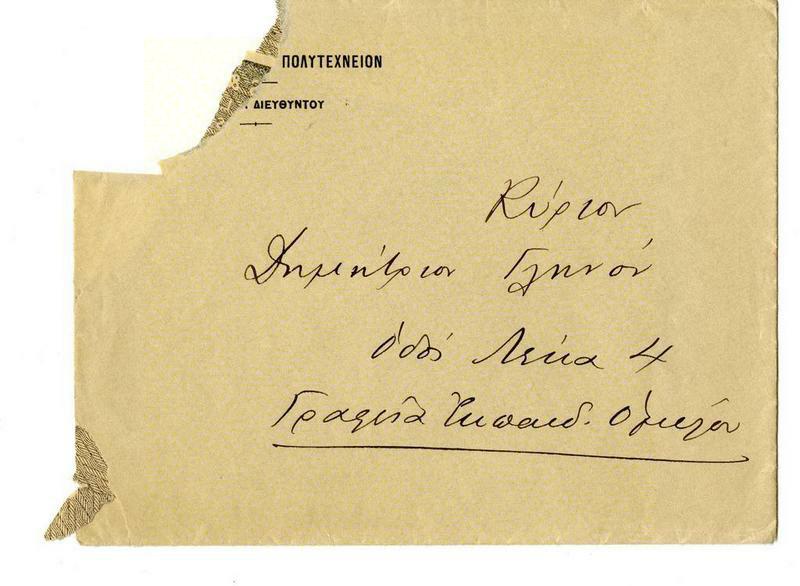 ΠΟΛΥΤΕΧΝΕΙΟΝ
ΔΙΕΥΘΥΝΤΟΥ
Κύριον
Δημήτριον Γληνόν
Ὁδός Λέκα 4
Γραφεῖα Ἐκπαιδ. Ὁμίλου